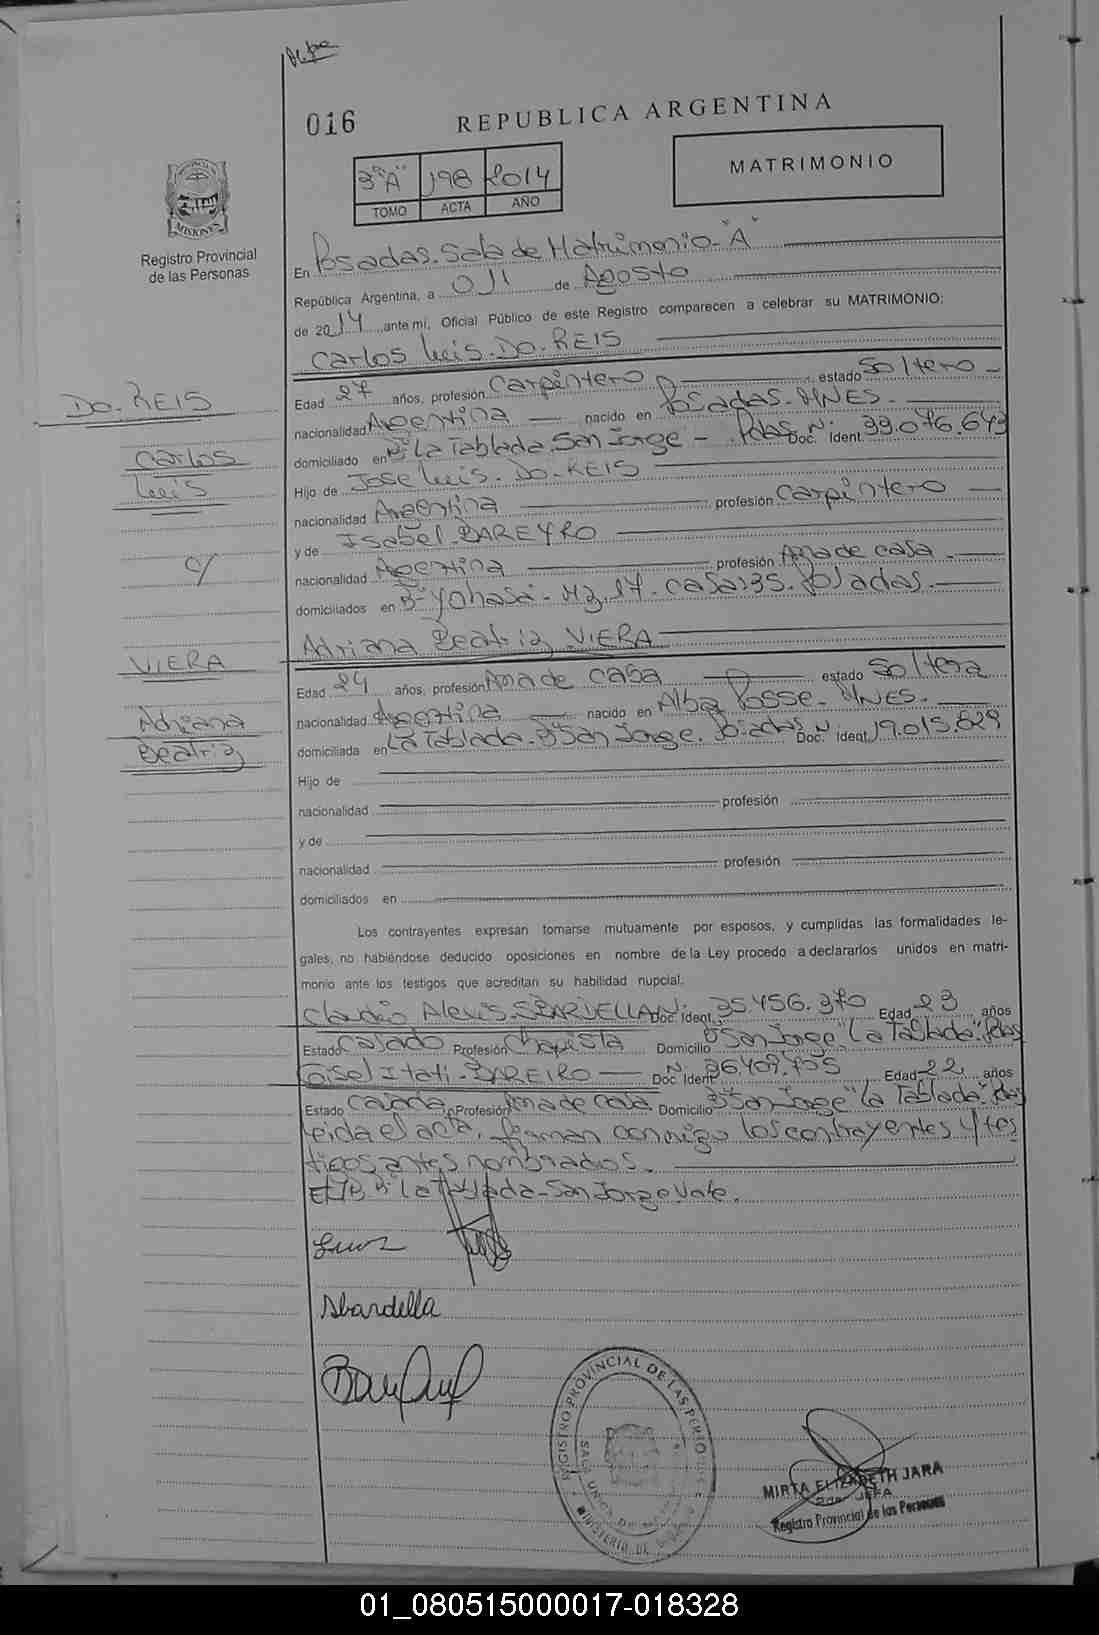 016
REPUBLICA ARGENTINA
3º"A" 198 2014
TOMO ACTA AÑO
MATRIMONIO
PROVINCIA DE
MISIONES
Registro Provincial
de las Personas
En Posadas. Sala de Matrimonio "A"
República Argentina, a 011 de Agosto
de 2014 ante mí, Oficial Público de este Registro comparecen a celebrar su MATRIMONIO:
Carlos Luis. DO. REIS
DO. REIS
Carlos
Luis
c/
VIERA
Adriana
Beatriz
Edad 27 años, profesión Carpintero estado Soltero
nacionalidad Argentina nacido en Posadas. MNES.
domiciliado en Bº La Tablada. San Jorge - Pdas Doc. Nº Ident. 39.076.643
Hijo de Jose Luis. DO. REIS
nacionalidad Argentina profesión Carpintero
y de Isabel. BAREYRO
nacionalidad Argentina profesión Ama de casa.
domiciliados en Bº Yohasa - Mz. 17. Casa: 35. Posadas.
Adriana Beatriz VIERA
Edad 24 años, profesión Ama de casa estado Soltera
nacionalidad Argentina nacido en Alba Posse. MNES.
domiciliada en La Tablada. Bº San Jorge. Posadas Doc. Nº Ident. 19.015.829
Hijo de
nacionalidad profesión
y de
nacionalidad profesión
domiciliados en
Los contrayentes expresan tomarse mutuamente por esposos, y cumplidas las formalidades le-
gales, no habiéndose deducido oposiciones en nombre de la Ley procedo a declararlos unidos en matri-
monio ante los testigos que acreditan su habilidad nupcial:
Claudio Alexis. SBARDELLA Doc. Nº Ident. 35.456.370 Edad 23 años
Estado Casado Profesión Chapista Domicilio Bº San Jorge "La Tablada" Pdas
Gisel Itati. BAREIRO Doc. Nº Ident. 36.409.755 Edad 22 años
Estado Casada Profesión Ama de casa Domicilio Bº San Jorge "La Tablada" Pdas
Leida el acta, firman conmigo los contrayentes y tes
tigos antes nombrados.
E/B Bº La Tablada - San Jorge Vale.
Sbardella
REGISTRO PROVINCIAL DE LAS PERSONAS
MINISTERIO DE
MIRTA ELIZABETH JARA
JEFA
Registro Provincial de las Personas
01_080515000017-018328